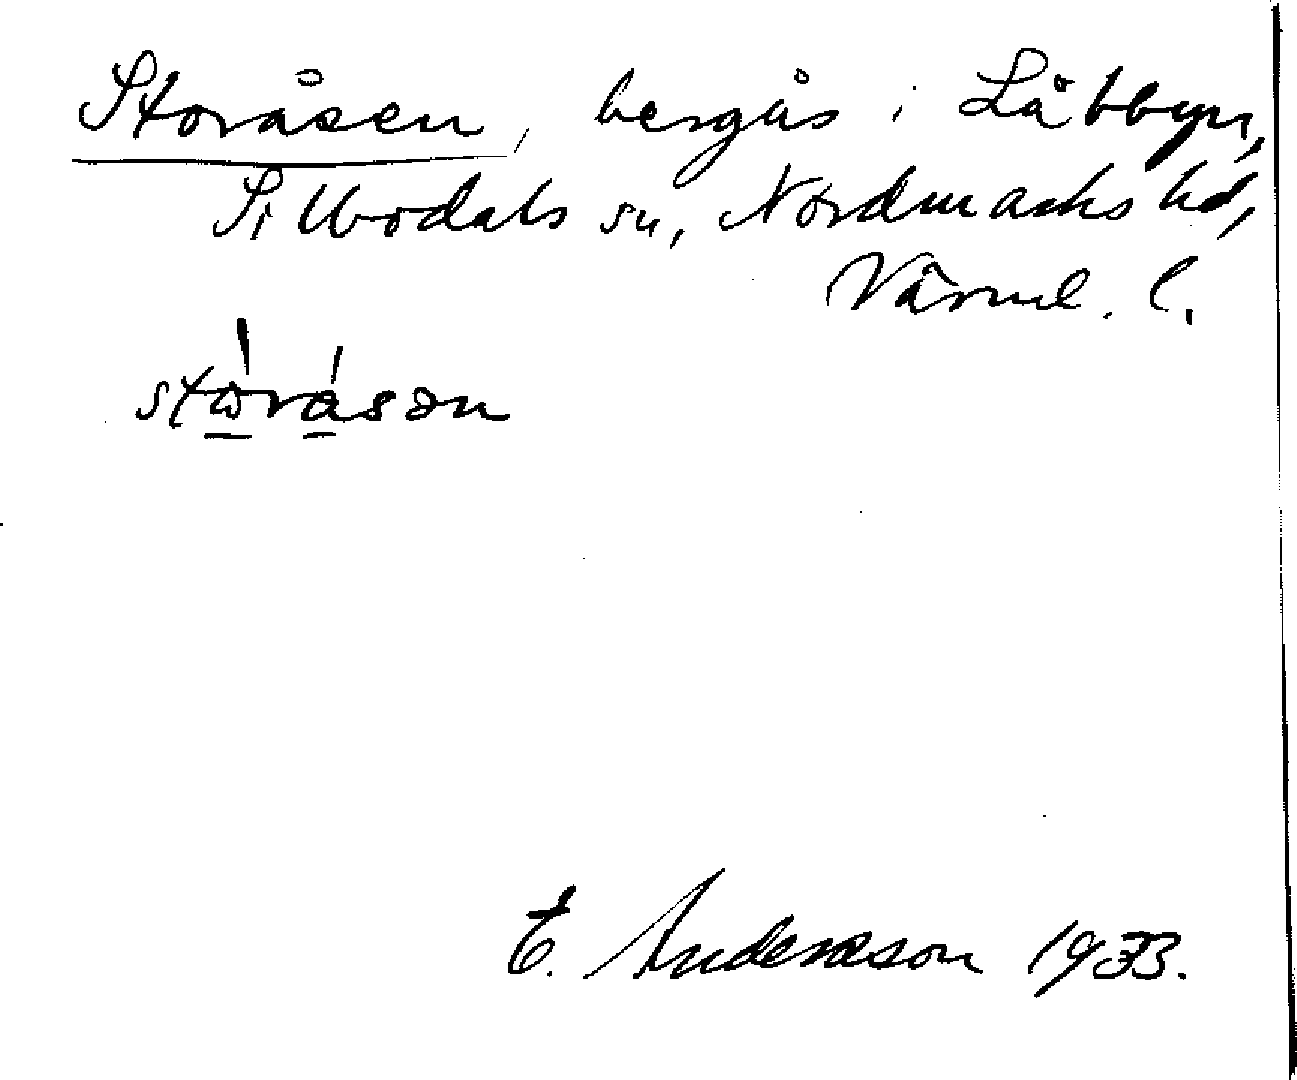 Storåsen, bergås i Låbbyn,
Sillbodals sn, Nordmarks hd,
Värml. l.
stω̲̍rǻ̲sən
E. Andersson 1933.